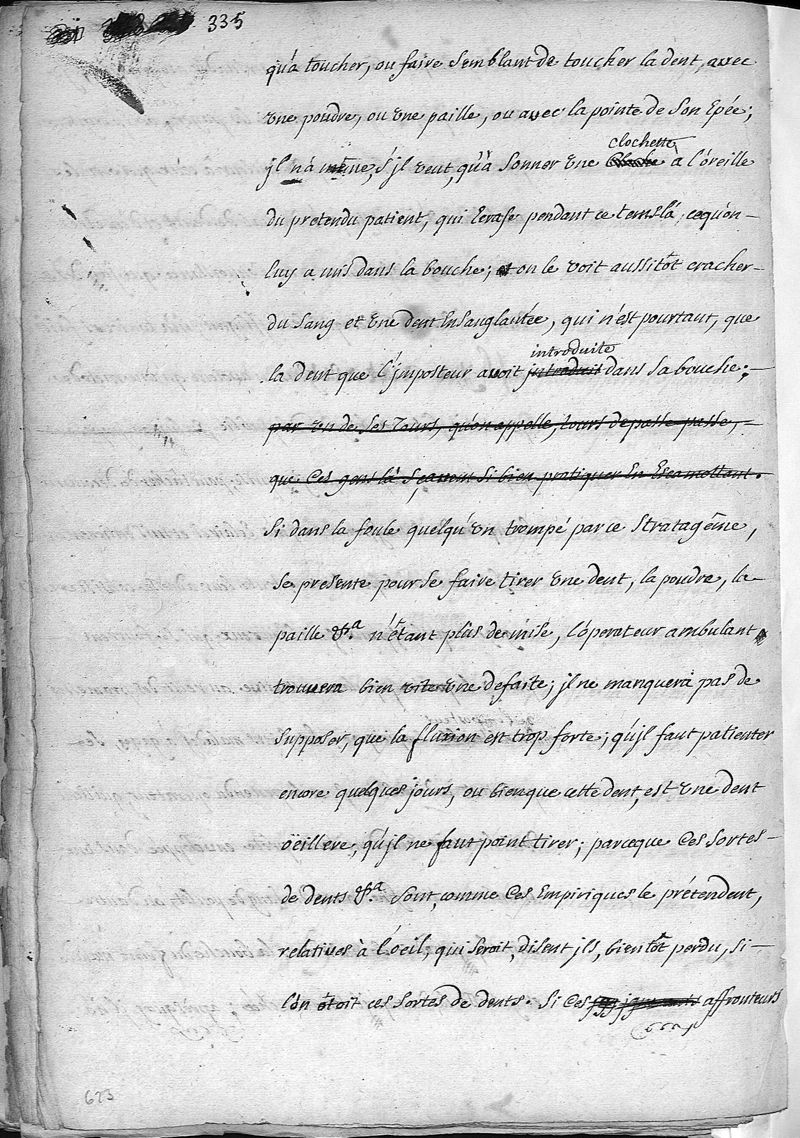 335
qu'a toucher, ou faire semblant de toucher la dent, avec
vne poudre, ou vne paille, ou avec la pointe de son Epée;
clochette
jl n'a même, s'jl veut, qu'a sonner vne cloche a l'oreille
du pretendu patient, qui Ecrase pendant ce temslà, cequ'on-
luy a mis dans la bouche; et on le voit aussitôt cracher-
du sang et vne dent Ensanglantée, qui n'est pourtant, que
introduite
la dent que l'jmposteur avoit jntroduit dans sa bouche;-
par vn de ses Tours, qu'on appelle, tours de passe passe,-
que Ces gens là sçavent si bien pratiquer En Escamottant.
Si dans la foule quelqu'vn trompé par ce Stratagême,
se presente pour se faire tirer vne dent, la poudre, la-
paille &.a n'étant plus de mise, l'óperateur ambulant
trouvera bien vite vne defaite; jl ne manquera pas de
supposer, que la fluxion est trop forte; qu'jl faut patienter
encore quelques jours, ou bien que cette dent, est vne dent
œillere, qu'jl ne faut point tirer; parceque Ces sortes-
de dents &.a sont, comme Ces Empiriques le prétendent,
relatives à l'oeil, qui seroit, disent jls, bientôt perdu, si-
l'ón ôtoit ces sortes de dents. Si Ces jgnorants affronteurs
673